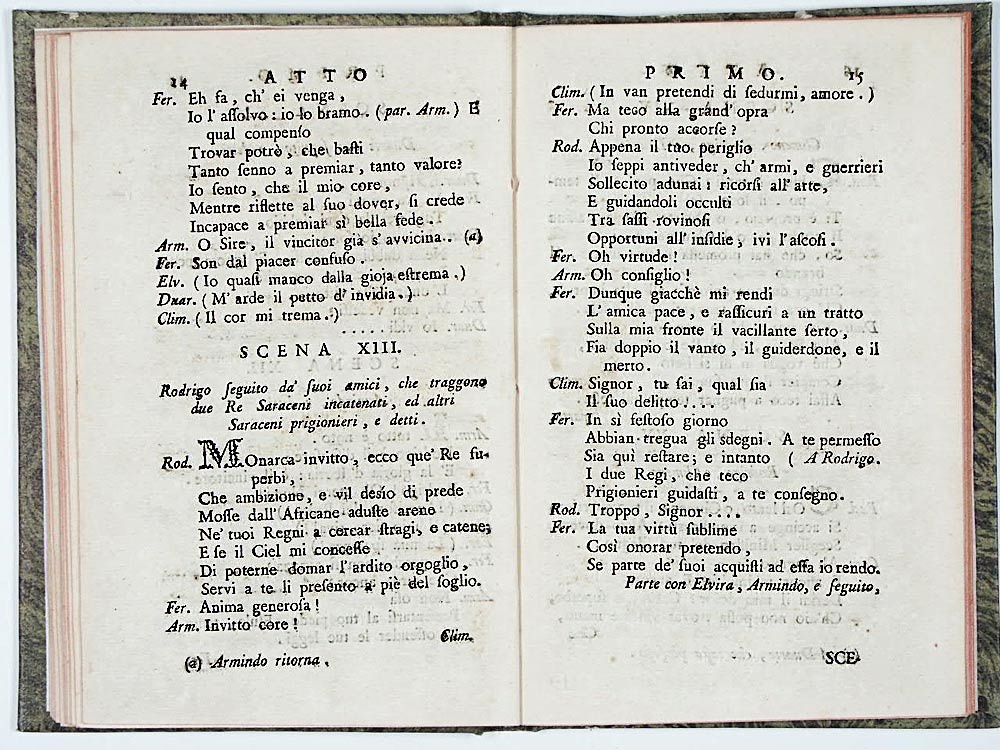 14 ATTO
Fer. Eh fa, ch' ei venga,
Io l' aſſolvo: io lo bramo. (par. Arm.) E
qual compenſo
Trovar potrò, che baſti
Tanto ſenno a premiar, tanto valore?
Io ſento, che il mio core,
Mentre riflette al ſuo dover, ſi crede
Incapace a premiar sì bella fede.
Arm. O Sire, il vincitor già s' avvicina.. (a)
Fer. Son dal piacer confuſo.
Elv. (Io quaſi manco dalla gioja eſtrema.)
Duar. (M' arde il petto d' invidia.)
Clim. (Il cor mi trema.)
.....
SCENA XIII.
Rodrigo ſeguito da' ſuoi amici, che traggono
due Re Saraceni incatenati, ed altri
Saraceni prigionieri, e detti.
Rod. MOnarca invitto, ecco que' Re ſu-
perbi,
Che ambizione, e vil deſio di prede
Moſſe dall' Africane aduſte arene
Ne' tuoi Regni a cercar ſtragi, e catene;
E ſe il Ciel mi conceſſe
Di poterne domar l' ardito orgoglio,
Servi a te li preſento a piè del ſoglio.
Fer. Anima generoſa!
Arm. Invitto core!
Clim.
(a) Armindo ritorna.
PRIMO. 15
Clim. (In van pretendi di ſedurmi, amore.)
Fer. Ma teco alla grand' opra
Chi pronto accorſe?
Rod. Appena il tuo periglio
Io ſeppi antiveder, ch' armi, e guerrieri
Sollecito adunai: ricorſi all' arte,
E guidandoli occulti
Tra ſaſſi rovinoſi
Opportuni all' inſidie, ivi l' aſcoſi.
Fer. Oh virtude!
Arm. Oh conſiglio!
Fer. Dunque giacchè mi rendi
L' amica pace, e raſſicuri a un tratto
Sulla mia fronte il vacillante ſerto,
Fia doppio il vanto, il guiderdone, e il
merto.
Clim. Signor, tu ſai, qual ſia
Il ſuo delitto....
Fer. In sì feſtoſo giorno
Abbian tregua gli sdegni. A te permeſſo
Sia quì reſtare; e intanto (A Rodrigo.
I due Regi, che teco
Prigionieri guidaſti, a te conſegno.
Rod. Troppo, Signor....
Fer. La tua virtù ſublime
Così onorar pretendo,
Se parte de' ſuoi acquiſti ad eſſa io rendo.
Parte con Elvira, Armindo, e ſeguito,
SCE-